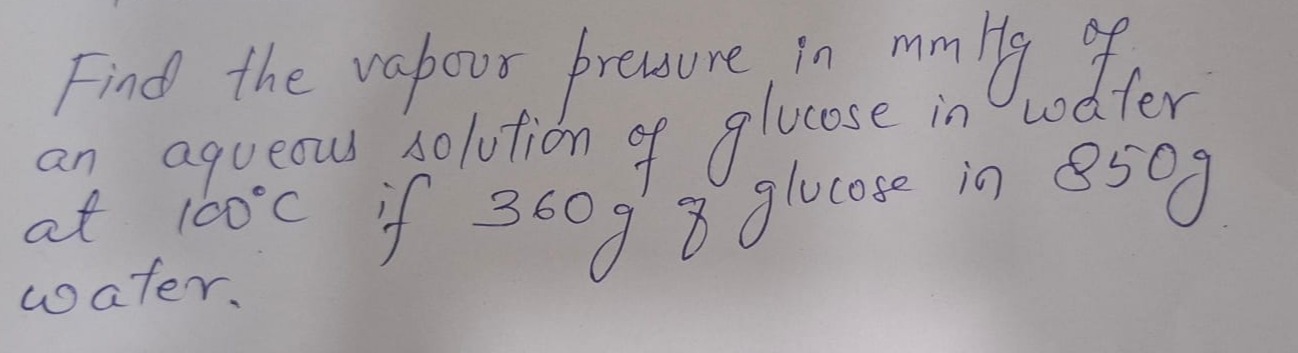 Find the vapour pressure in mmHg of
an aqueous solution of glucose in water
at 100°C if 360g of glucose in 850g
water.